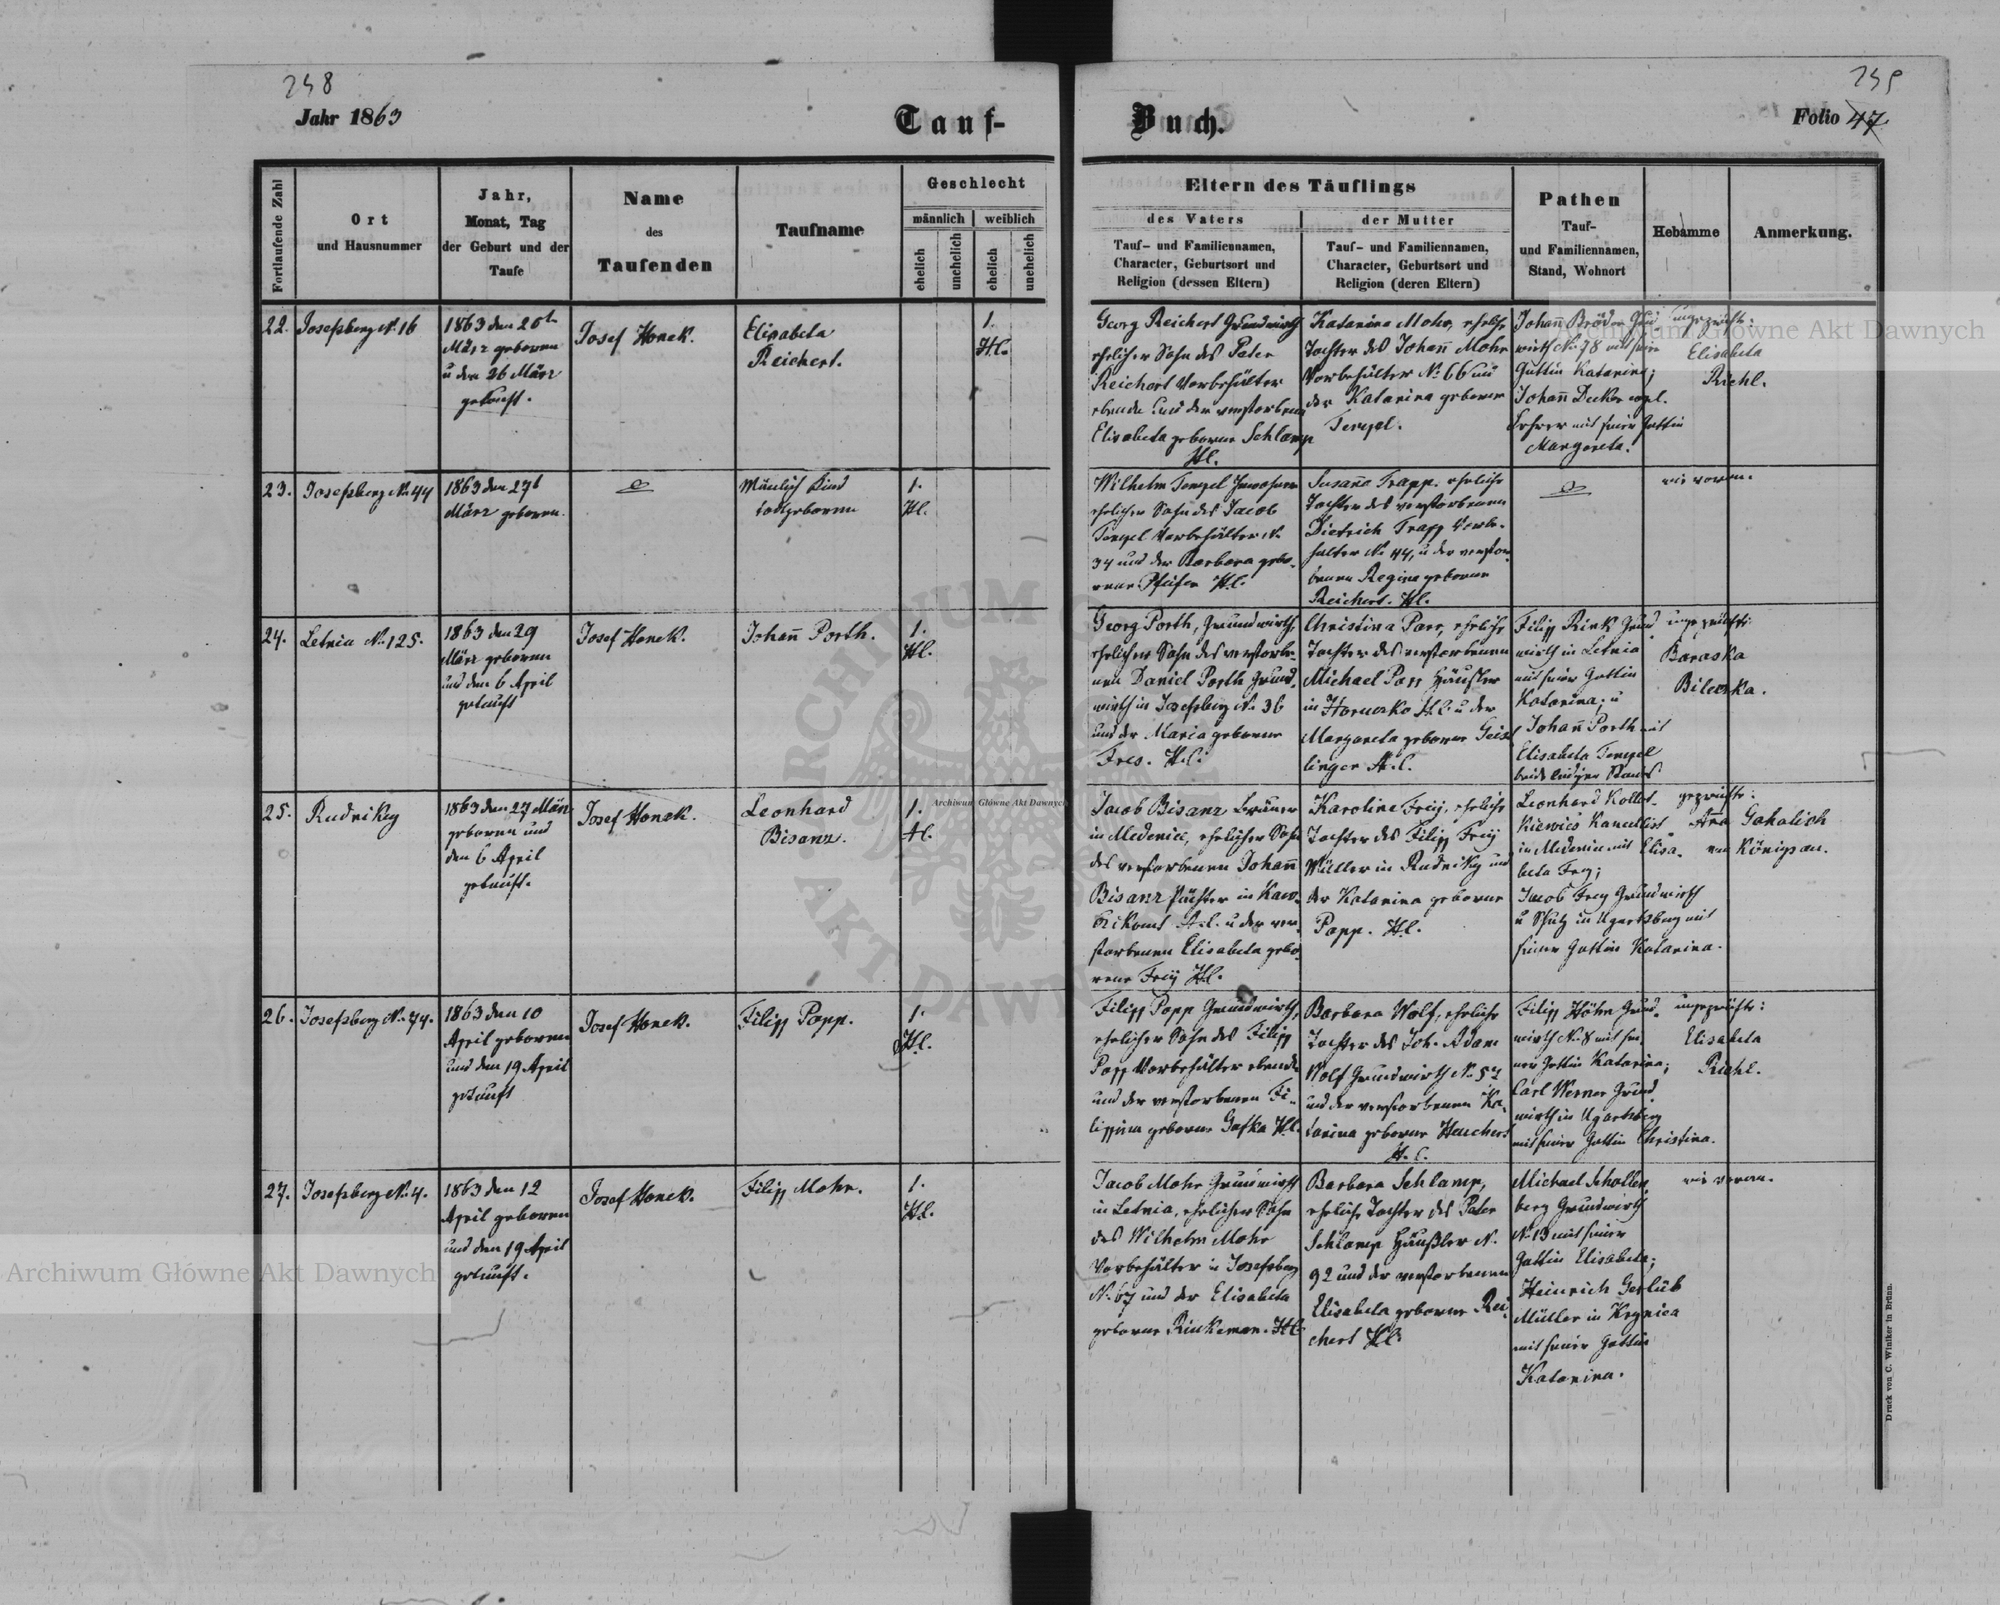 258
259
Jahr 1863
Tauf-
Buch.
Folio 47
Fortlaufende Zahl
Ort
und Hausnummer
Jahr,
Monat, Tag
der Geburt und der
Taufe
Name
des
Taufenden
Taufname
Geschlecht
männlich
weiblich
ehelich
unehelich
ehelich
unehelich
Eltern des Täuflings
des Vaters
Tauf- und Familiennamen,
Character, Geburtsort und
Religion (dessen Eltern)
der Mutter
Tauf- und Familiennamen,
Character, Geburtsort und
Religion (deren Eltern)
Pathen
Tauf-
und Familiennamen,
Stand, Wohnort
Hebamme
Anmerkung.
22.
Josefsberg N. 16
1863 den 20t
März geboren
u den 26 März
getauft.
Josef Honek.
Elisabeta
Reichert.
1.
H.C.
Georg Reichert Grundwirth
ehelicher Sohn des Peter
Reichert Vorbehälter
ebenda und der verstorbenen
Elisabeta geborne Schlamp
H.C.
Katarina Mohr, eheliche
Tochter des Johann Mohr
Vorbehälter No 66 und
der Katarina geborene
Tempel.
Johann Bröder Grund
wirth No 78 mit seiner
Gattin Katarina;
Johann Decker evgl.
Lehrer mit seiner Gattin
Margareta.
ungeprüfte:
Elisabeta
Riehl.
23.
Josefsberg No 44
1863 den 27t
März geboren.
Mänlich Kind
todtgeboren
1.
H.C.
Wilhelm Tempel Inwohner
ehelicher Sohn des Jacob
Tempel Vorbehälter N.
34 und der Barbara gebo-
rene Pfeifer H.C.
Susanna Trapp. eheliche
Tochter des verstorbenen
Dietrich Trapp Vorbe-
halter No 44, u der verstor
benen Regine geborene
Reichert. H.C.
wie voran.
24.
Letnia No 125.
1863 den 29
März geboren
und den 6 April
getauft
Josef Honek.
Johann Porth.
1.
H.C.
Georg Porth, Grundwirth,
ehelicher Sohn des verstorbe-
nen Daniel Porth Grund-
wirth in Josefsberg N. 36
und der Maria geborene
H.C.
Christina Parr, eheliche
Tochter des verstorbenen
Michael Parr Häußler
in H.C. u der
Margareta geborne Geis
linger H.C.
Filipp Rink Grund
wirth in Letnia
mit seiner Gattin
Katarina; u
Johann Porth mit
Elisabeta Tempel
beide ledigen Standes.
ungeprüfte:
Baraska
Bilecka.
25.
Rudniky
1863 den 27 März
geboren und
den 6 April
getauft.
Josef Honek.
Leonhard
Bisanz.
1.
H.C.
Jacob Bisanz Bräuer
in Medenice, ehelicher Sohn
des verstorbenen Johann
Bisanz Pächter in
H.C. u der ver-
storbenen Elisabeta gebo-
rene Freÿ H.C.
Karoline Freÿ, eheliche
Tochter des Filipp Freÿ
Müller in Rudniky und
der Katarina geborne
Popp. H.C.
Leonhard Kollot-
kiewicz Kancellist
in Medenice mit Elisa-
beta Frey;
Jacob Frey Grundwirth
u Schulz in Ugartsberg mit
seiner Gattin Katarina.
geprüfte:
Anna Gohalich
von Königsau.
26.
Josefsberg No 74.
1863 den 10
April geboren
und den 19 April
getauft
Josef Honek.
Filipp Popp.
1.
H.C.
Filipp Popp Grundwirth,
ehelicher Sohn des Filipp
Popp Vorbehälter ebenda
und der verstorbenen Fi-
lippina geborne Gafka H.C.
Barbara Wolf, eheliche
Tochter des Joh. Adam
Wolf Grundwirth No 57
und der verstorbenen Ka-
tarina geborne Heuchert
H.C.
Filipp Höhn Grund-
wirth No 8 mit sei-
ner Gattin Katarina;
Carl Werner Grund
wirth in Ugartsberg
mit seiner Gattin Christina.
ungeprüfte:
Elisabeta
Riehl.
27.
Josefsberg No 4.
1863 den 12
April geboren
und den 19 April
getauft.
Josef Honek.
Filipp Mohr.
1.
H.C.
Jacob Mohr Grundwirth
in Letnia, ehelicher Sohn
des Wilhelm Mohr
Vorbehälter in Josefsberg
No 67 und der Elisabeta
geborne Rinkemer. H.C.
Barbara Schlamp,
eheliche Tochter des Peter
Schlamp Häußler N.
92 und der verstorbenen
Elisabeta geborne Rei
chert H.C.
Michael Schollen
berg Grundwirth
No 13 mit seiner
Gattin Elisabeta;
Heinrich Gerlüb
Müller in Krynica
mit seiner Gattin
Katarina.
wie voran.
Druck von C. Winiker in Brünn.
Archiwum Główne Akt Dawnych
Archiwum Główne Akt Dawnych
Archiwum Główne Akt Dawnych
ARCHIWUM
AKT DAWNYCH